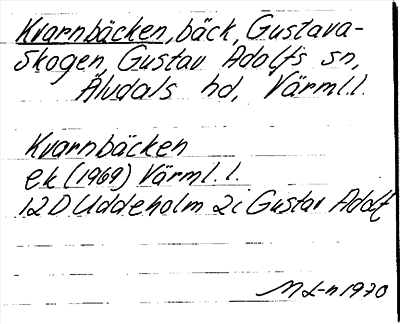 Kvarnbäcken, bäck, Gustava-
Skogen, Gustav Adolfs sn,
Älvdals hd, Värml.l.
Kvarnbäcken
ek (1969) Värml. l.
12D Uddeholm 2c Gustav Adolf
M L-n 1970